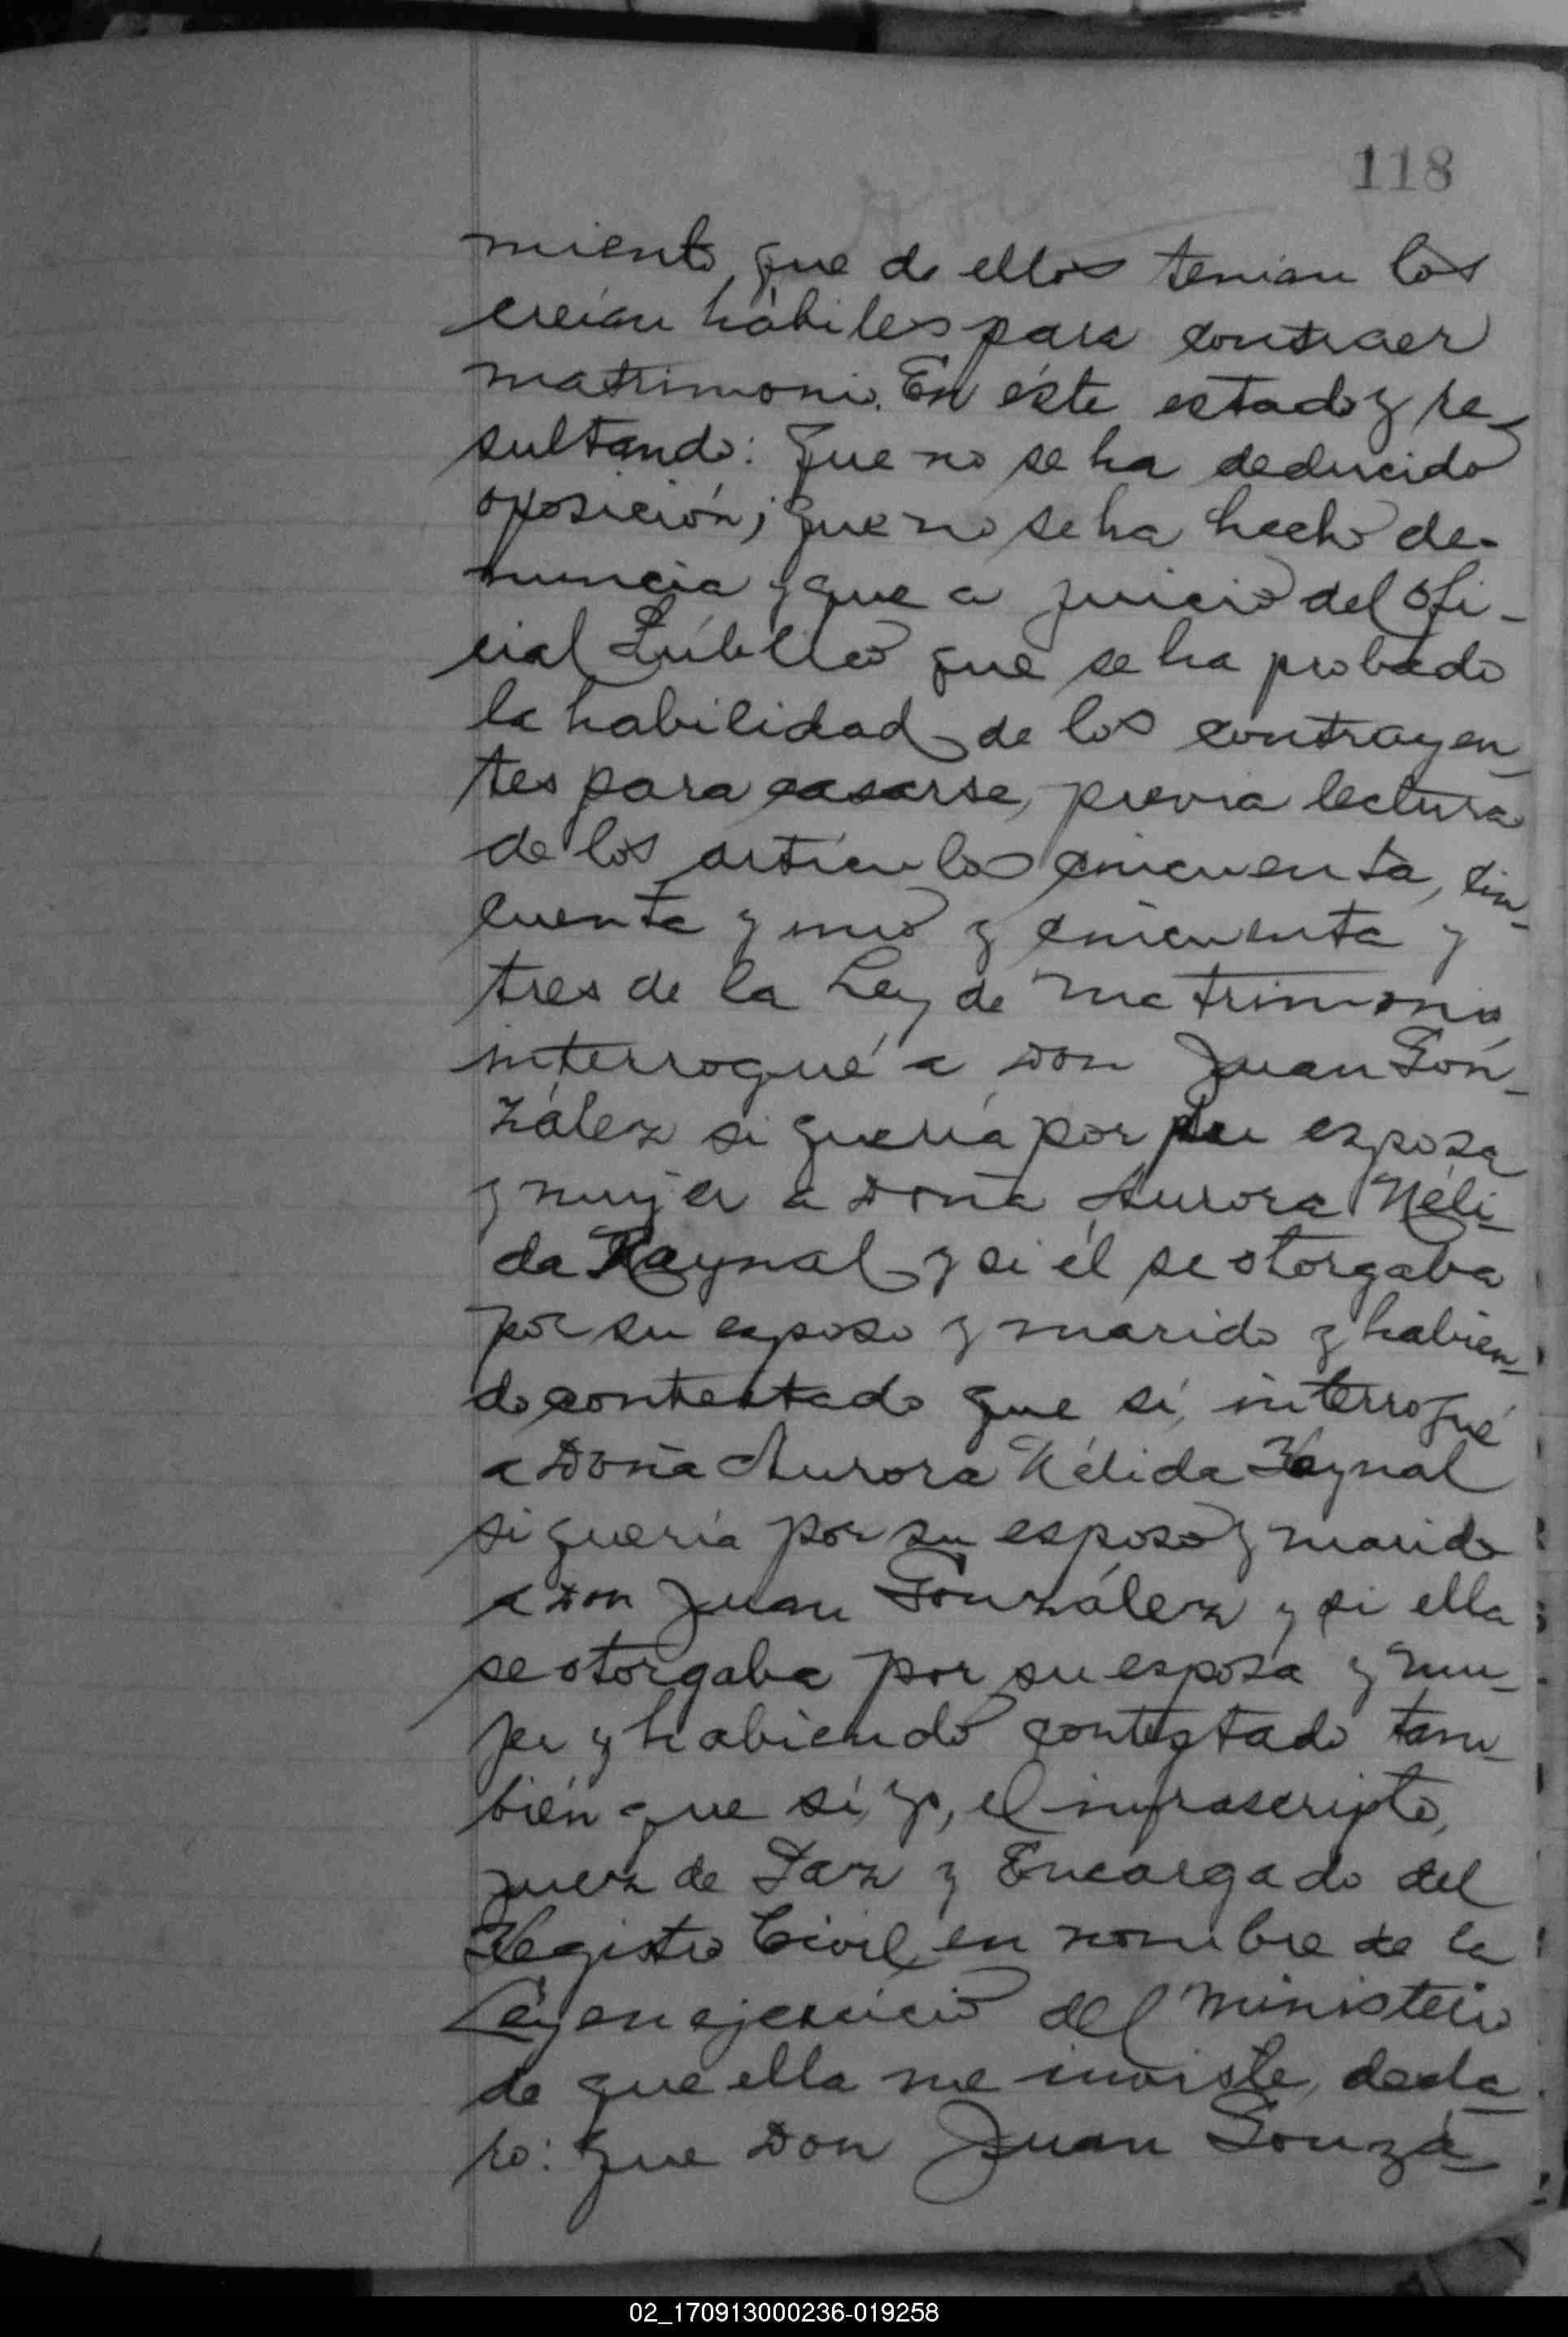 118
miento que de ellos tenian los
creian hábiles para contraer
matrimonio. En éste estado y re-
sultando: que no se ha deducido
oposición; que no se ha hecho de-
nuncia y que a juicio del Ofi-
cial Público que se ha probado
la habilidad de los contrayen-
tes para casarse, previa lectura
de los artículos cincuenta, cin-
cuenta y uno y cincuenta y
tres de la Ley de Matrimonio
interrogué a Don Juan Gon-
zález si quería por su esposa
y mujer a Doña Aurora Néli-
da Raynal y si él se otorgaba
por su esposo y marido y habien-
do contestado que sí, interrogué
a Doña Aurora Nélida Raynal
si quería por su esposo y marido
a Don Juan González y si ella
se otorgaba por su esposa y mu-
jer y habiendo contestado tam-
bién que sí, yo, el infrascripto,
Juez de Paz y Encargado del
Registro Civil, en nombre de la
Ley en ejercicio del ministerio
de que ella me inviste, decla-
ro: que Don Juan Gonzá-
02_170913000236-019258